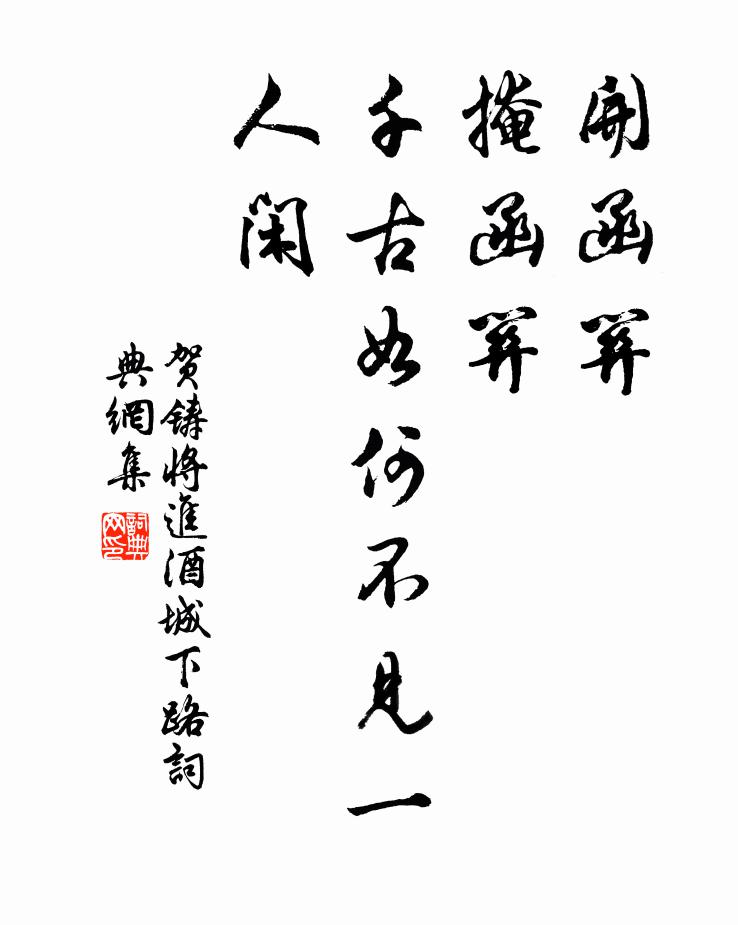 開函關
掩函關
千古如何不見一
人閑
賀鑄將進酒城下路詞
典網集
詞典
网印